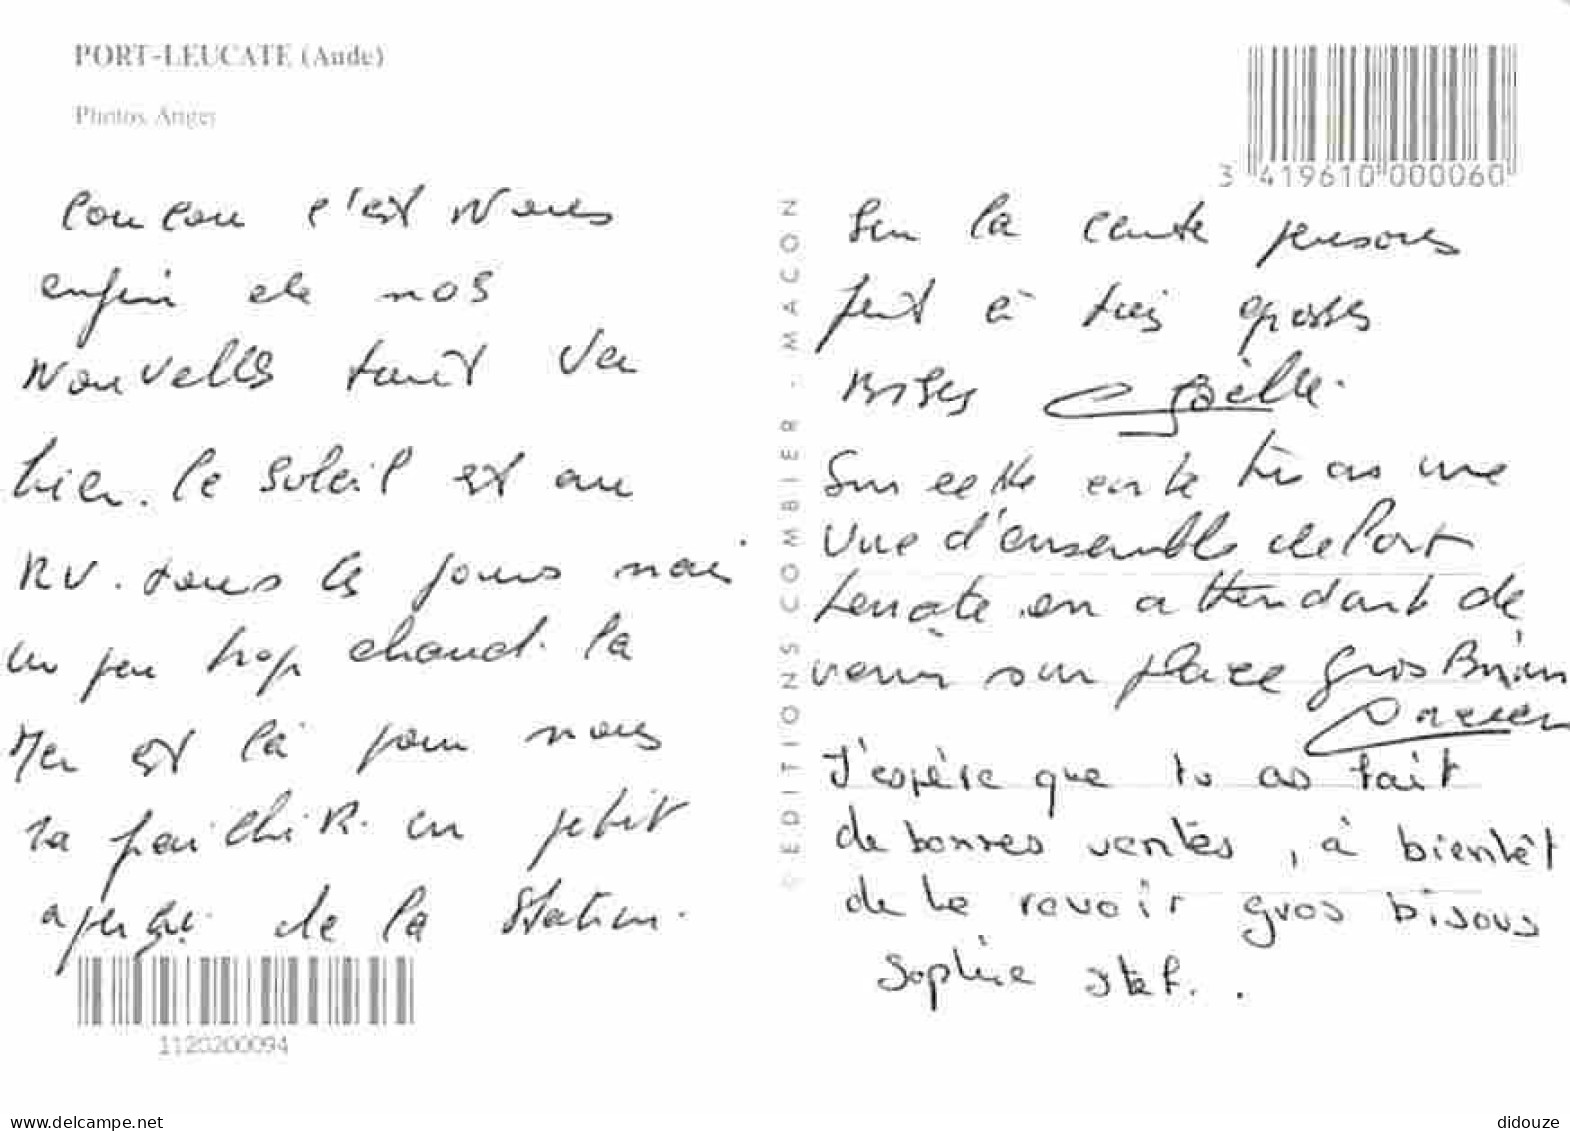 PORT-LEUCATE (Aude)
Photos Anger
Coucou c'est Nous
enfin de nos
Nouvelles tout va
bien. le Soleil est au
RV. tous les jours mais
un peu trop chaud. la
Mer est là pour nous
un petit
de la Station.
1120200094
EDITIONS COMBIER - MACON
3 419610 000060
Sur la carte
à très grosses
Bises Gaëlle.
Sur cette carte tu as une
Vue d'ensemble de Port
Leucate en attendant de
venir sur place Gros
J'espère que tu as fait
de bonnes ventes, à bientôt
de te revoir gros bisous
Sophie Stef..
delcampe.net
didouze